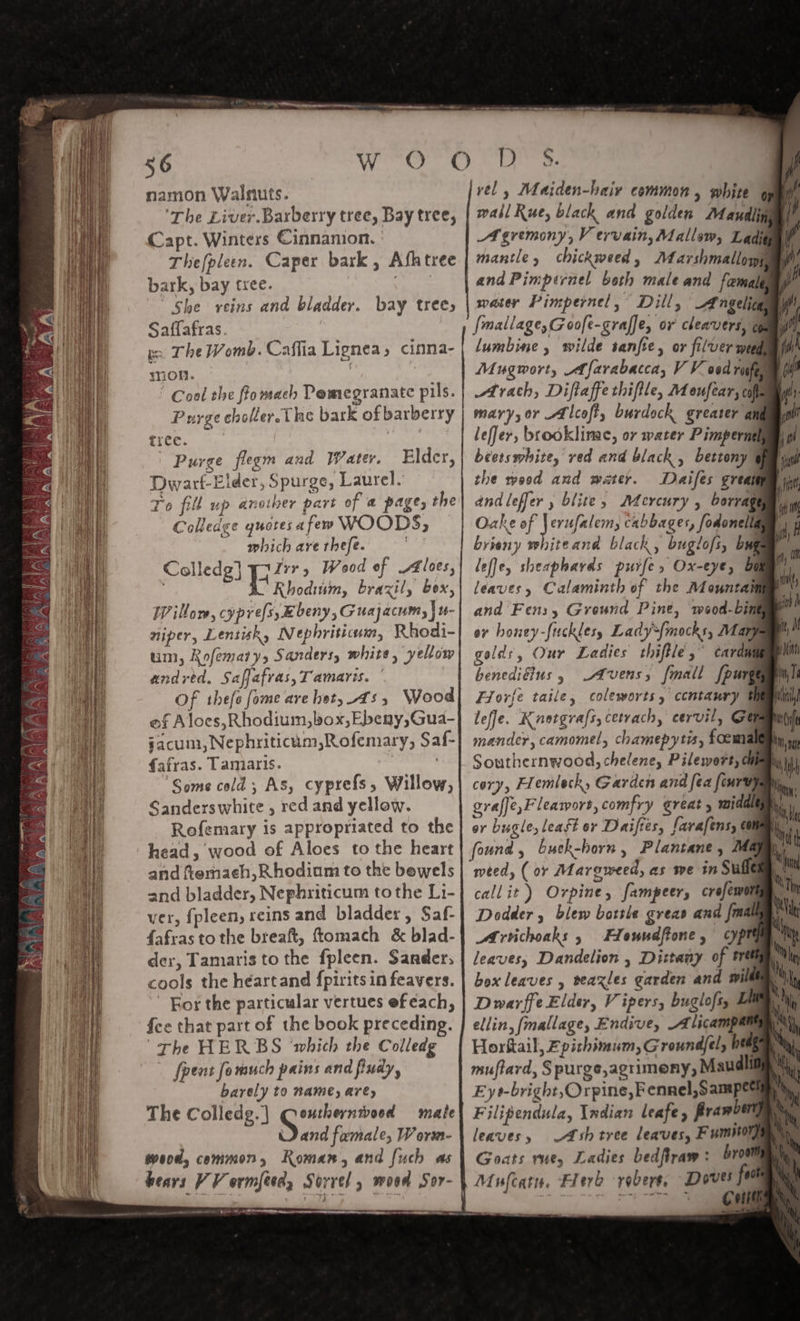 56 WOODS.
namon Walnuts.
The Liver. Barberry tree, Bay tree,
Capt. Winters Cinnamon.
The ſpleen. Caper bark, Aſh tree
bark, bay tree.
She reins and bladder. bay tree,
Saſſafras.
The Womb. Caſſia Lignea, cinna-
mon.
Cool the ſtomach Pomegranate pils.
Purge choller. The bark of barberry
tree.
Purge flegm and Water. Elder,
Dwarf-Elder, Spurge, Laurel.
To fill up another part of a page, the
Colledge quotes a few WOODS,
which are theſe.
Colledg] Firr, Wood of Aloes,
Rhodium, brazil, box,
Willow, cypreſs, Ebeny, Guajacum, Ju-
niper, Lentisk, Nephriticum, Rhodi-
um, Roſemary, Sanders, white, yellow
and red. Saſſafras, Tamaris.
Of theſe ſome are hot, As, Wood
of Aloes, Rhodium, box, Ebeny, Gua-
jacum, Nephriticum, Roſemary, Saſ-
ſafras. Tamaris.
Some cold; As, cypreſs, Willow,
Sanders white, red and yellow.
Roſemary is appropriated to the
head, wood of Aloes to the heart
and ſtomach, Rhodium to the bowels
and bladder, Nephriticum to the Li-
ver, ſpleen, reins and bladder, Saſ-
ſafras to the breaſt, ſtomach & blad-
der, Tamaris to the ſpleen. Sanders
cools the heart and ſpirits in feavers.
For the particular vertues of each,
ſee that part of the book preceding.
The HERBS which the Colledg
ſpent ſo much pains and ſtudy,
barely to name, are,
The Colledg.] Southernwood male
and fœmale, Worm-
wood, common, Roman, and ſuch as
bears VVormſeed, Sorrel, wood Sor-
rel, Maiden-hair common, white or
wall Rue, black and golden Maudlin,
Agremony, Vervain, Mallow, Ladies
mantle, chickweed, Marshmallows,
and Pimpernel both male and fœmale,
water Pimpernel, Dill, Angelica,
ſmallage, Gooſe-graſſe, or cleavers, co-
lumbine, wilde tanſie, or ſilver weed,
Mugwort, Aſarabacca, VVoodrooſe,
Arach, Diſtaffe thiſtle, Mouſear, coſt-
mary, or Alcoſt, burdock greater and
leſſer, brooklime, or water Pimpernel,
beets white, red and black, bettony of
the wood and water. Daiſes greater
and leſſer, blite, Mercury, borrage,
Oake of Jeruſalem, cabbages, ſodonella,
briony white and black, bugloſs, bug-
leſſe, sheaphards purſe, Ox-eye, box
leaves, Calaminth of the Mountain
and Fens, Ground Pine, wood-bine,
or honey-ſuckles, Lady-ſmocks, Mary-
golds, Our Ladies thiſtle, carduus
benedictus, Avens, ſmall ſpurge,
Horſe taile, coleworts, centaury the
leſſe. Knotgraſs, cetrach, cervil, Ger-
mander, camomel, chamepytis, fœmale
Southernwood, chelene, Pilewort, chi-
cory, Hemlock, Garden and ſea ſcurvy-
graſſe, Fleawort, comfry great, middle,
or bugle, leaſt or Daiſies, ſaraſens, con-
ſound, buck-horn, Plantane, May
weed, (or Margweed, as we in Suffex
call it) Orpine, ſampeer, croſewort,
Dodder, blew bottle great and ſmall,
Artichoaks, Houndſtone, cypreſs
leaves, Dandelion, Dittany of
box leaves, teazles garden and wilde,
Dwarffe Elder, Vipers, bugloſs,
ellin, ſmallage, Endive, Alicampane,
Horſtail, Epithimum, Groundſel, hedg-
muſtard, Spurge, agrimony, Maudlin,
Eye-bright, Orpine, Fennel, Sampeer,
Filipendula, Indian leafe, ſtrawberry
leaves, Ash tree leaves, Fumitory,
Goats rue, Ladies bedſtraw: broom,
Muſcatu, Herb robert, Doves foot,